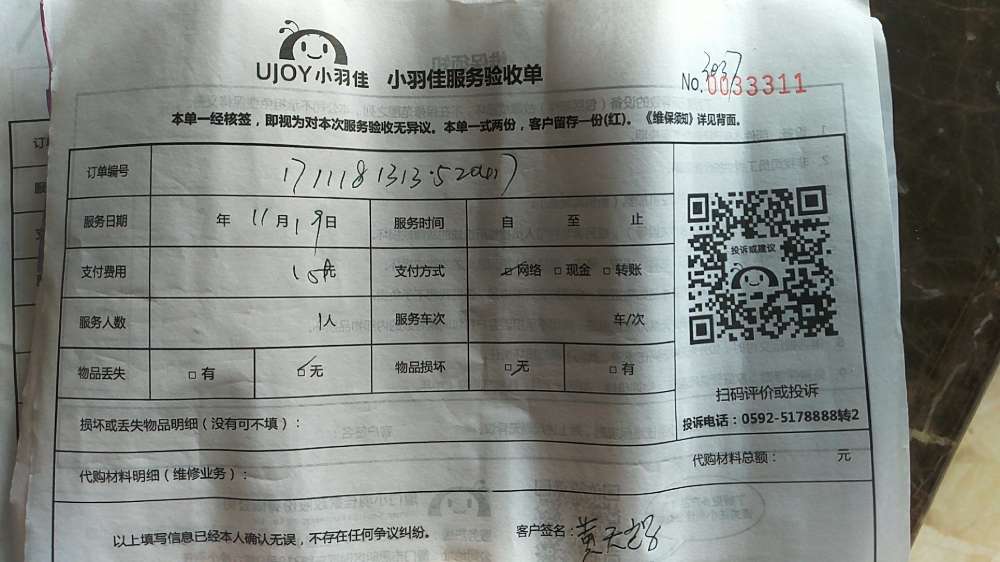 UJOY小羽佳 小羽佳服务验收单
3037
No.0033311
本单一经核签，即视为对本次服务验收无异议。本单一式两份，客户留存一份(红)。《维保须知》详见背面。
订单编号
服务日期 年 11月19日 服务时间 自 至 止
支付费用 支付方式 □网络 □现金 □转账
服务人数 1人 服务车次 车/次
物品丢失 □有 □无 物品损坏 □无 □有
投诉或建议
扫码评价或投诉
投诉电话：0592-5178888转2
损坏或丢失物品明细（没有可不填）：
代购材料明细（维修业务）： 代购材料总额： 元
以上填写信息已经本人确认无误，不存在任何争议纠纷。 客户签名：